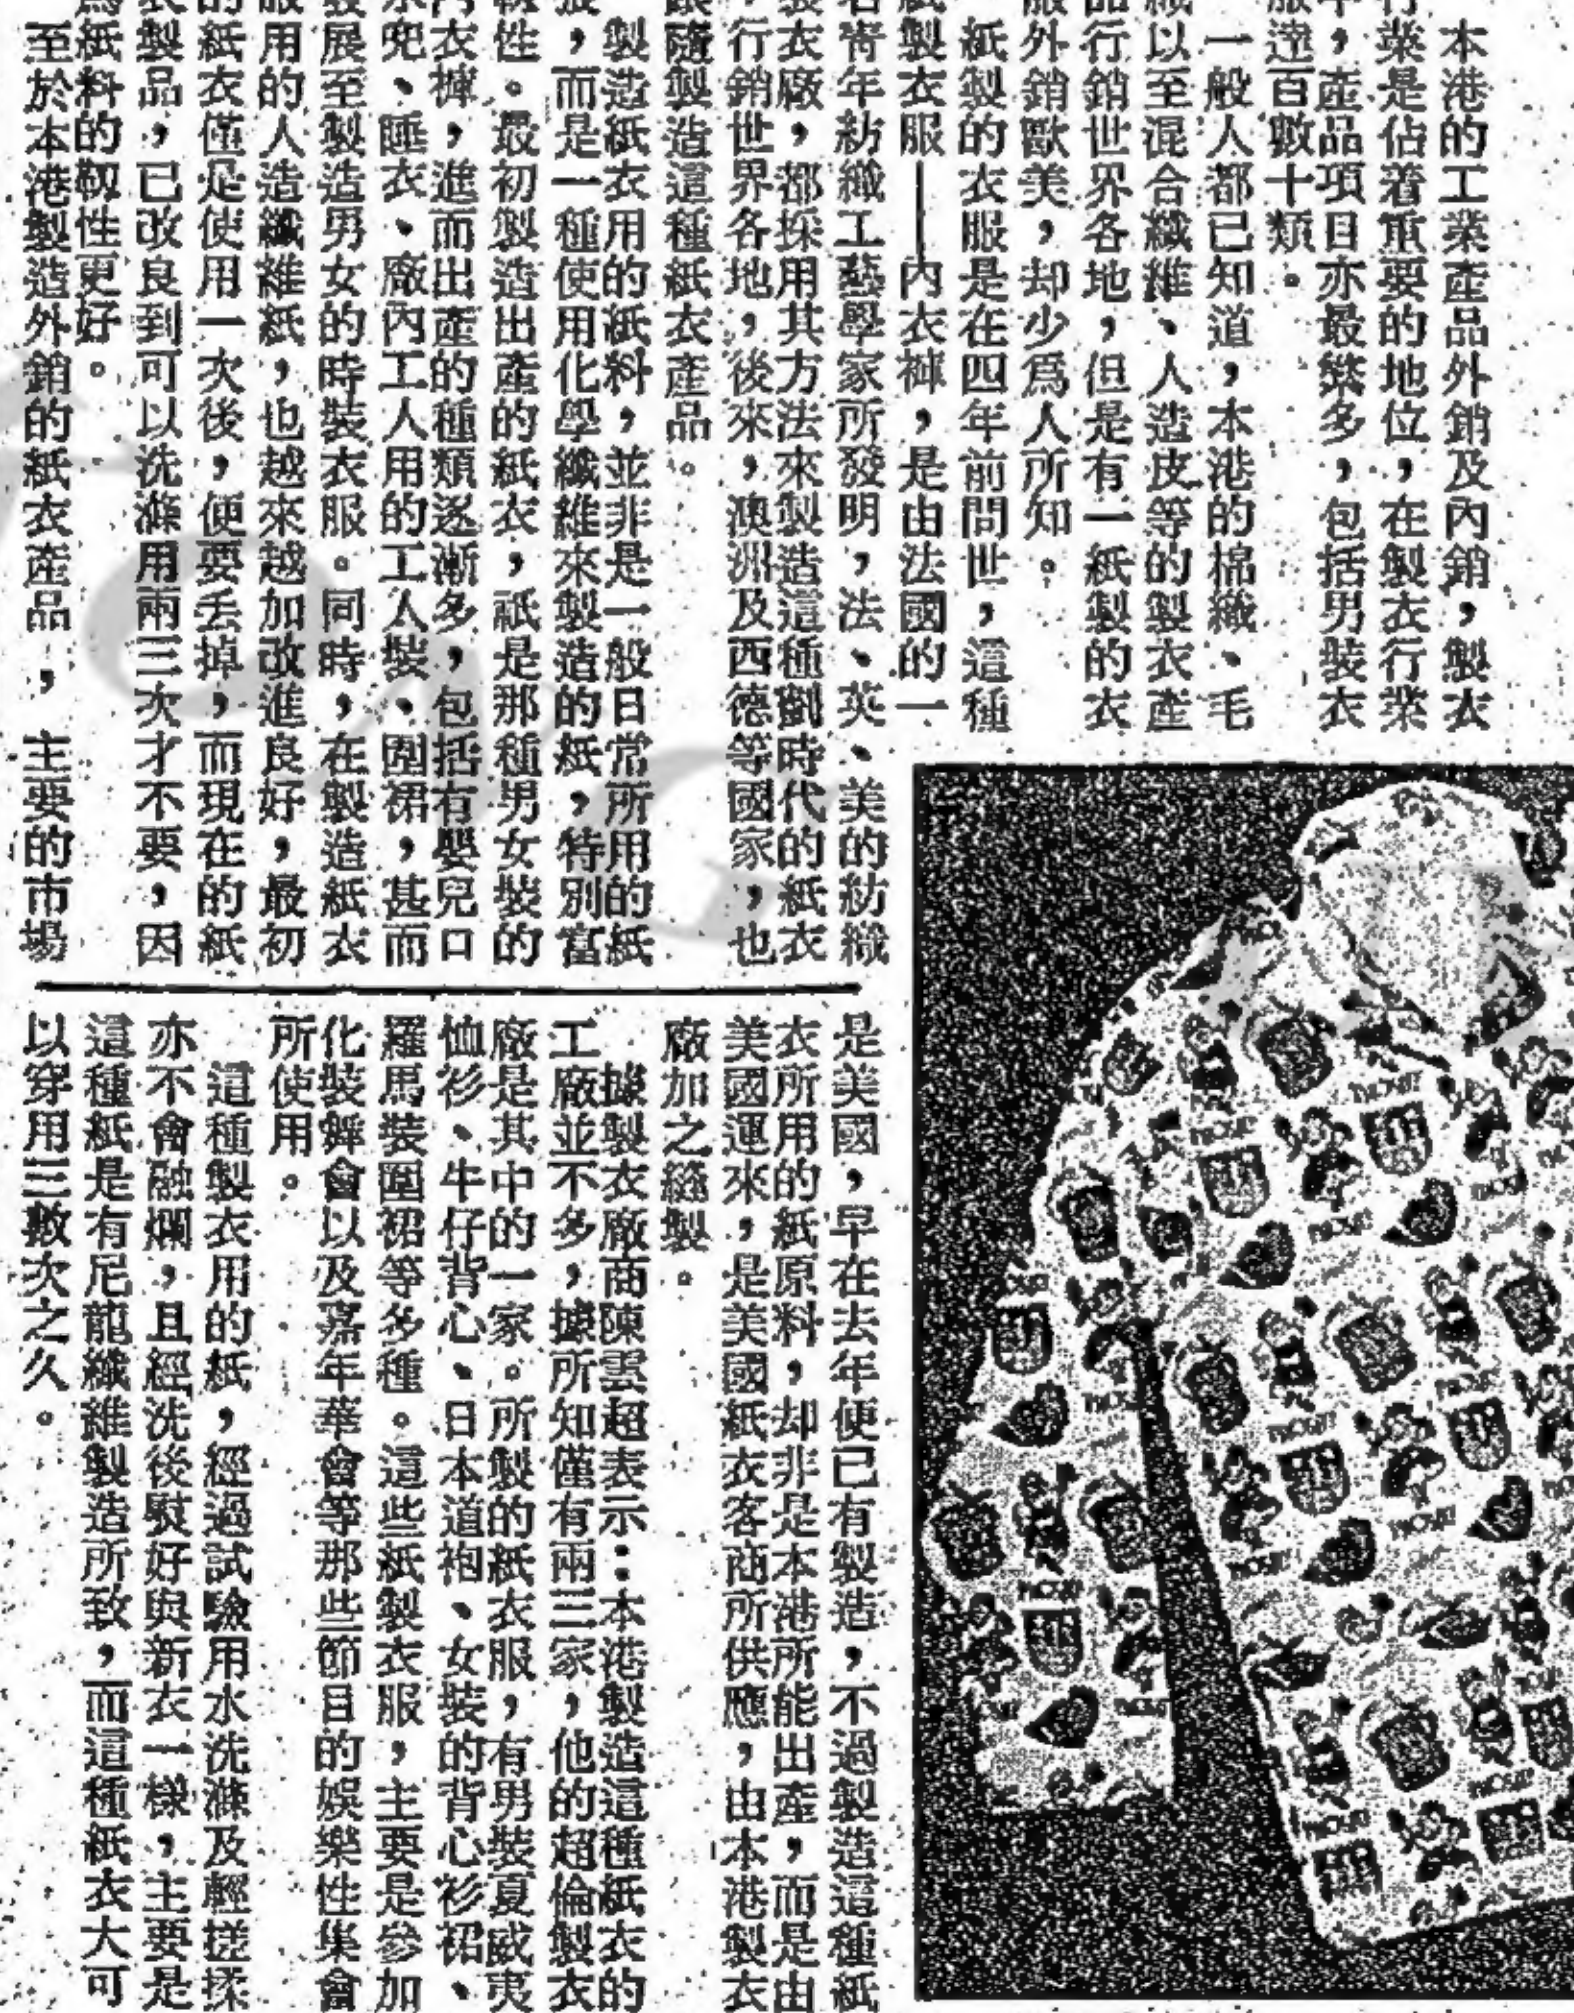 本港的工業產品外銷及內銷，製衣
行業是佔着重要的地位，在製衣行業
中，產品項目亦最繁多，包括男裝衣
服達百數十類。
一般人都已知道，本港的棉織、毛
織以至混合織維、人造皮等的製衣產
品行銷世界各地，但是有一紙製的衣
服外銷歐美，却少為人所知。
紙製的衣服是在四年前問世，這種
紙製衣服——內衣褲，是由法國的一
名青年紡織工藝學家所發明，法、英、美的紡織
製衣廠，都採用其方法來製造這種劃時代的紙衣
，行銷世界各地，後來，澳洲及西德等國家，也
跟隨製造這種紙衣產品。
製造紙衣用的紙料，並非是一般日常所用的紙
張，而是一種使用化學纖維來製造的紙，特別富
靱性。最初製造出產的紙衣，祇是那種男女裝的
內衣褲，進而出產的種類逐漸多，包括有嬰兒口
水兜、睡衣、廠內工人用的工人裝、圍裙，甚而
發展至製造男女的時裝衣服。同時，在製造紙衣
服用的人造纖維紙，也越來越加改進良好，最初
的紙衣僅是使用一次後，便要丢掉，而現在的紙
衣製品，已改良到可以洗滌用兩三次才不要，因
為紙料的靱性更好。
至於本港製造外銷的紙衣產品，主要的市場
是美國，早在去年便已有製造，不過製造這種紙
衣所用的紙原料，却非是本港所能出產，而是由
美國運來，是美國紙衣客商所供應，由本港製衣
廠加之縫製。
據製衣廠商陳雲超表示：本港製造這種紙衣的
工廠並不多，據所知僅有兩三家，他的超倫製衣
廠是其中的一家。所製的紙衣服，有男裝夏威夷
恤衫、牛仔背心、日本道袍、女裝的背心衫裙、
羅馬裝圍裙等多種。這些紙製衣服，主要是參加
化裝舞會以及嘉年華會等那些節目的娛樂性集會
所使用。
這種製衣用的紙，經過試驗用水洗滌及輕搓揉
亦不會融爛，且經洗後熨好與新衣一樣，主要是
這種紙是有尼龍纖維製造所致，而這種紙衣大可
以穿用三數次之久。